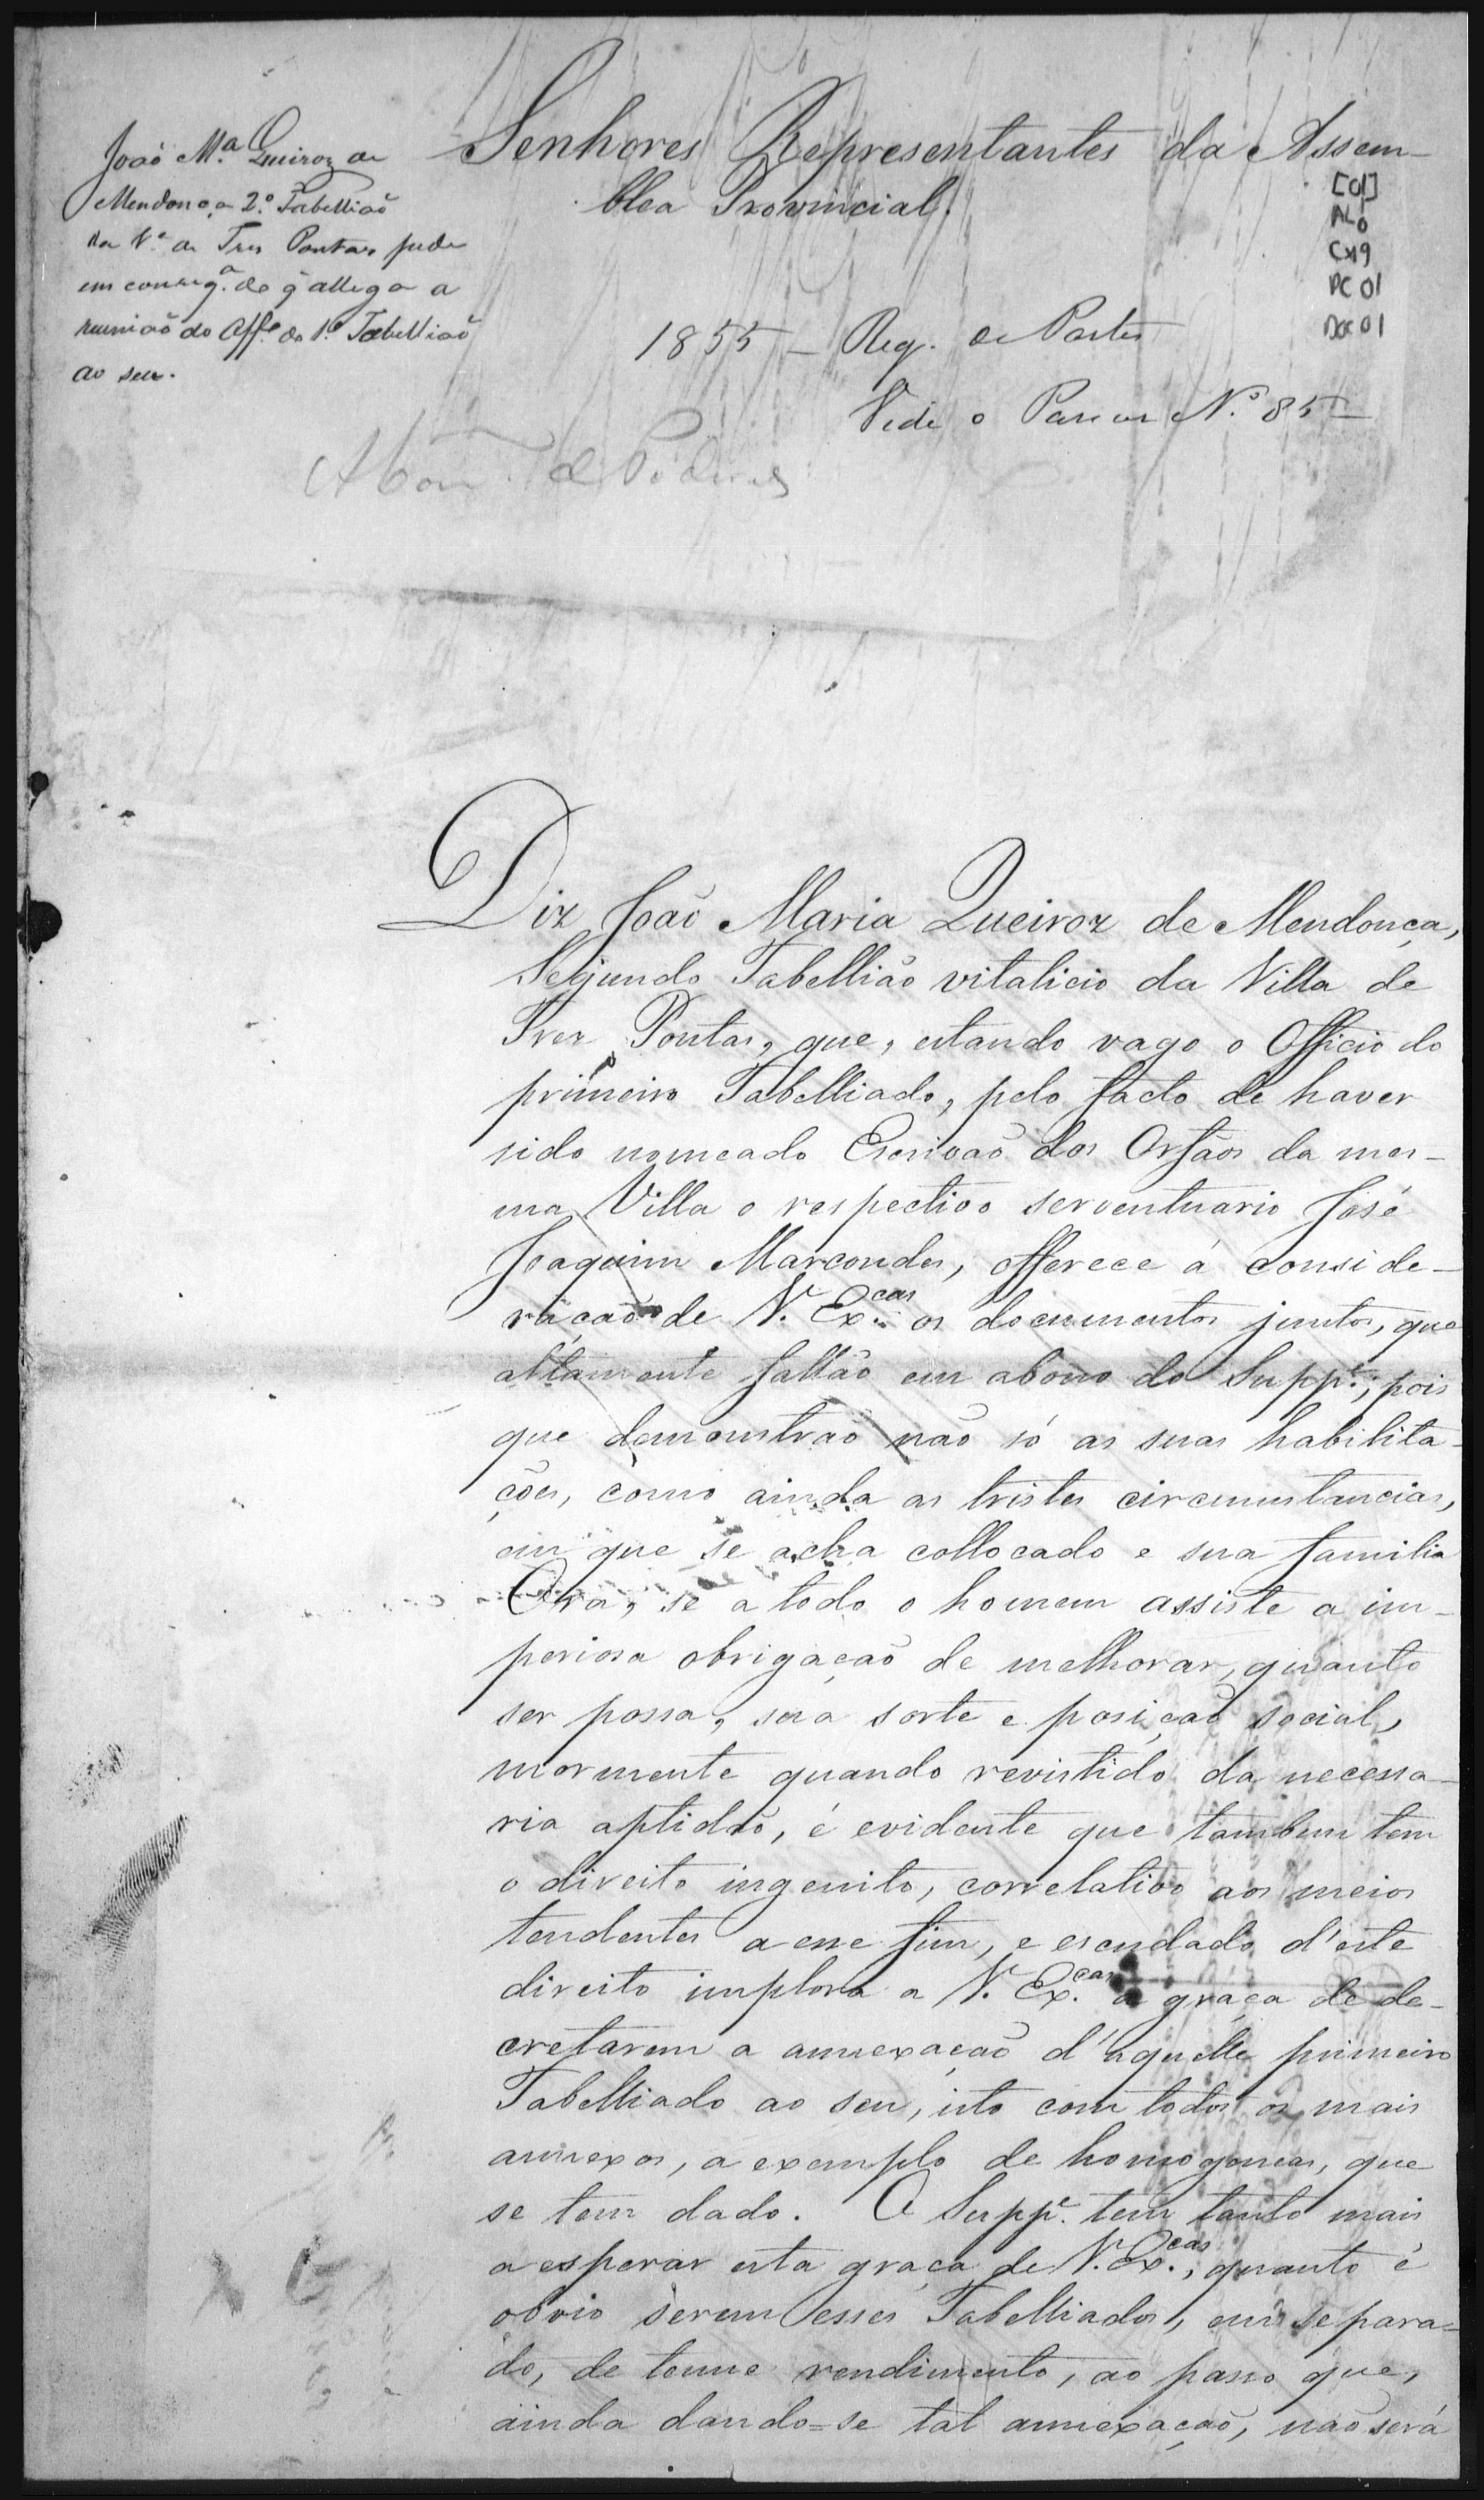 Senhores Representantes da Assem-
blea Provincial.
João M.ª Queiroz de
Mendonça 2.º Tabellião
da V.ª de Tres Pontas pede
em conseq.ª do q̃ allega a
reunião do Off.º do 1.º Tabellião
ao seu.
[01]
AL6
Cx19
PC 01
Doc 01
1855 — Req. de Partes
Vide o Parecer N.º 85 —
A Com. de Poderes
Diz João Maria Queiroz de Mendonça,
Segundo Tabellião vitalicio da Villa de
Tres Pontas, que, estando vago o Officio do
primeiro Tabelliado, pelo facto de haver
sido nomeado Escrivão dos Orfãos da mes-
ma Villa o respectivo serventuario José
Joaquim Marcondes, offerece á conside-
ração de V. Ex.cas os documentos juntos, que
altamente fallão em abono do Supp.e, pois
que demonstrão não só as suas habilita-
ções, como ainda as tristes circumstancias,
em que se acha collocado e sua familia
Ora, se a todo o homem assiste a im-
periosa obrigação de melhorar, quanto
ser possa, sua sorte e posição social,
mormente quando revistido da necessa-
ria aptidão, é evidente que tambem tem
o direito ingenito, correlativo aos meios
tendentes a esse fim, e escudado d'este
direito implora a V. Ex.cas a graça de de-
cretarem a annexação d'aquelle primeiro
Tabelliado ao seu, isto com todos os mais
annexos, a exemplo de homogeneas, que
se tem dado. O Supp.e tem tanto mais
a esperar esta graça de V. Ex.cas, quanto é
obvio serem esses Tabelliados, em separa-
do, de tenue rendimento, ao passo que,
ainda dando=se tal annexação, não será